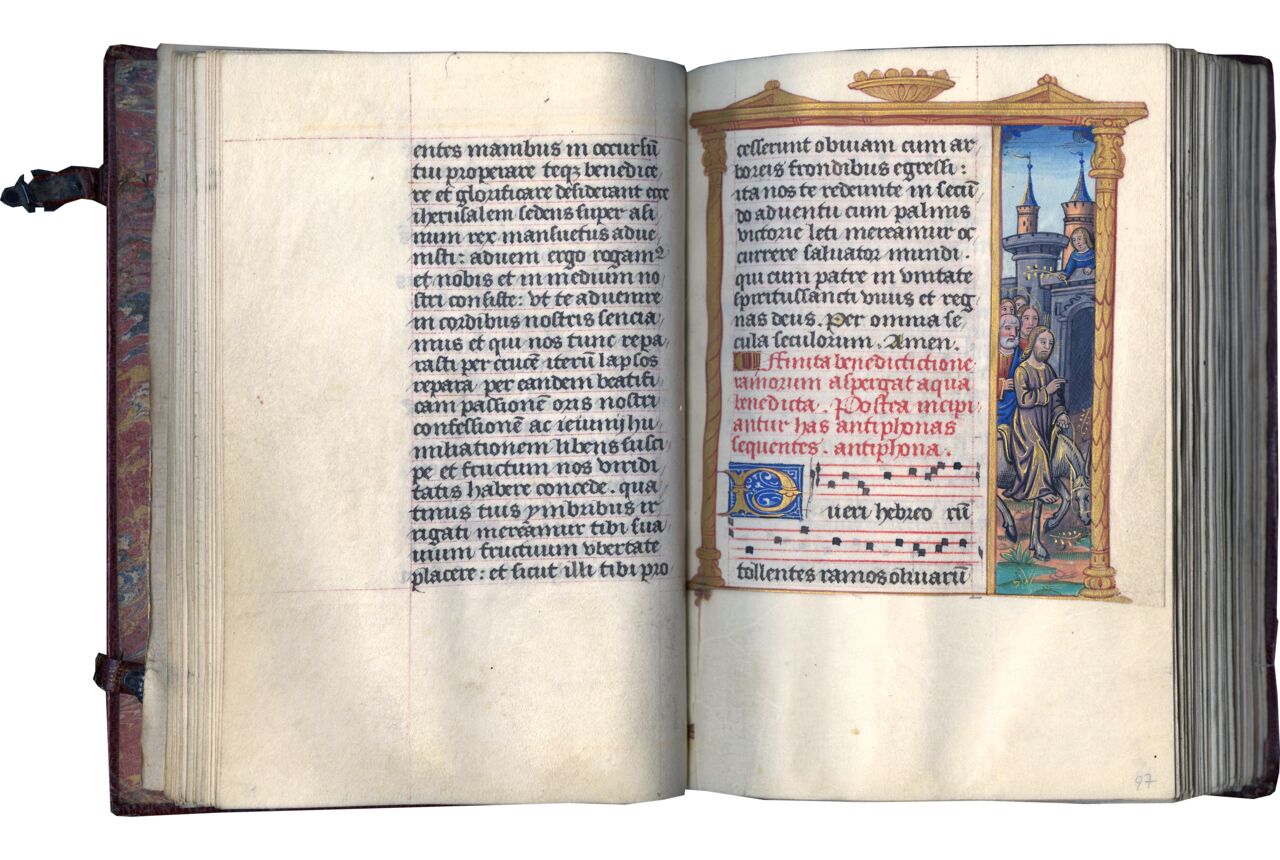 entes manibus in occursū
tui properare teqꝫ benedice
re et glorificare desiderant ecce
iherusalem sedens super asi
num rex mansuetus adue
nisti: adueni ergo rogamꝰ
et nobis et in medium no
stri consiste: vt te aduenire
in cordibus nostris sencia
mus et qui nos tunc repa
rasti per crucē iterū lapsos
repara per eandem beatifi
cam passionē oris nostri
confessionē ac ieiunij hu
miliationem libens susci
pe et fructum nos viridi
tatis habere concede. qua
tinus tuis ymbribus ir
rigati mereamur tibi sua
uium fructuum vbertate
placere: et sicut illi tibi pro
cesserunt obuiam cum ar
boreis frondibus egressi:
ita nos te redeunte in secū
do aduentu cum palmis
victorie leti mereamur oc
currere saluator mundi.
qui cum patre in vnitate
spiritussancti viuis et reg
nas deus. Per omnia se
cula seculorum. Amen.
Ffinita benedictictione
ramorum aspergat aqua
benedicta. Postea incipi
antur has antiphonas
sequentes. antiphona.
Pueri hebreo rū
tollentes ramos oliuarū
97